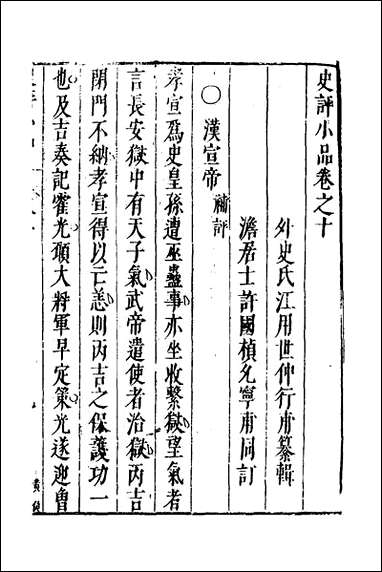 史評小品卷之十
外史氏江用世仲行甫纂輯
澹居士許國楨允寧甫同訂
○漢宣帝 補評
孝宣爲史皇孫遭巫蠱事亦坐收繫獄望氣者
言長安獄中有天子氣武帝遣使者治獄丙吉
閉門不納孝宣得以亡恙則丙吉之保護功一
也及吉奏記霍光願大將軍早定策光遂迎曾